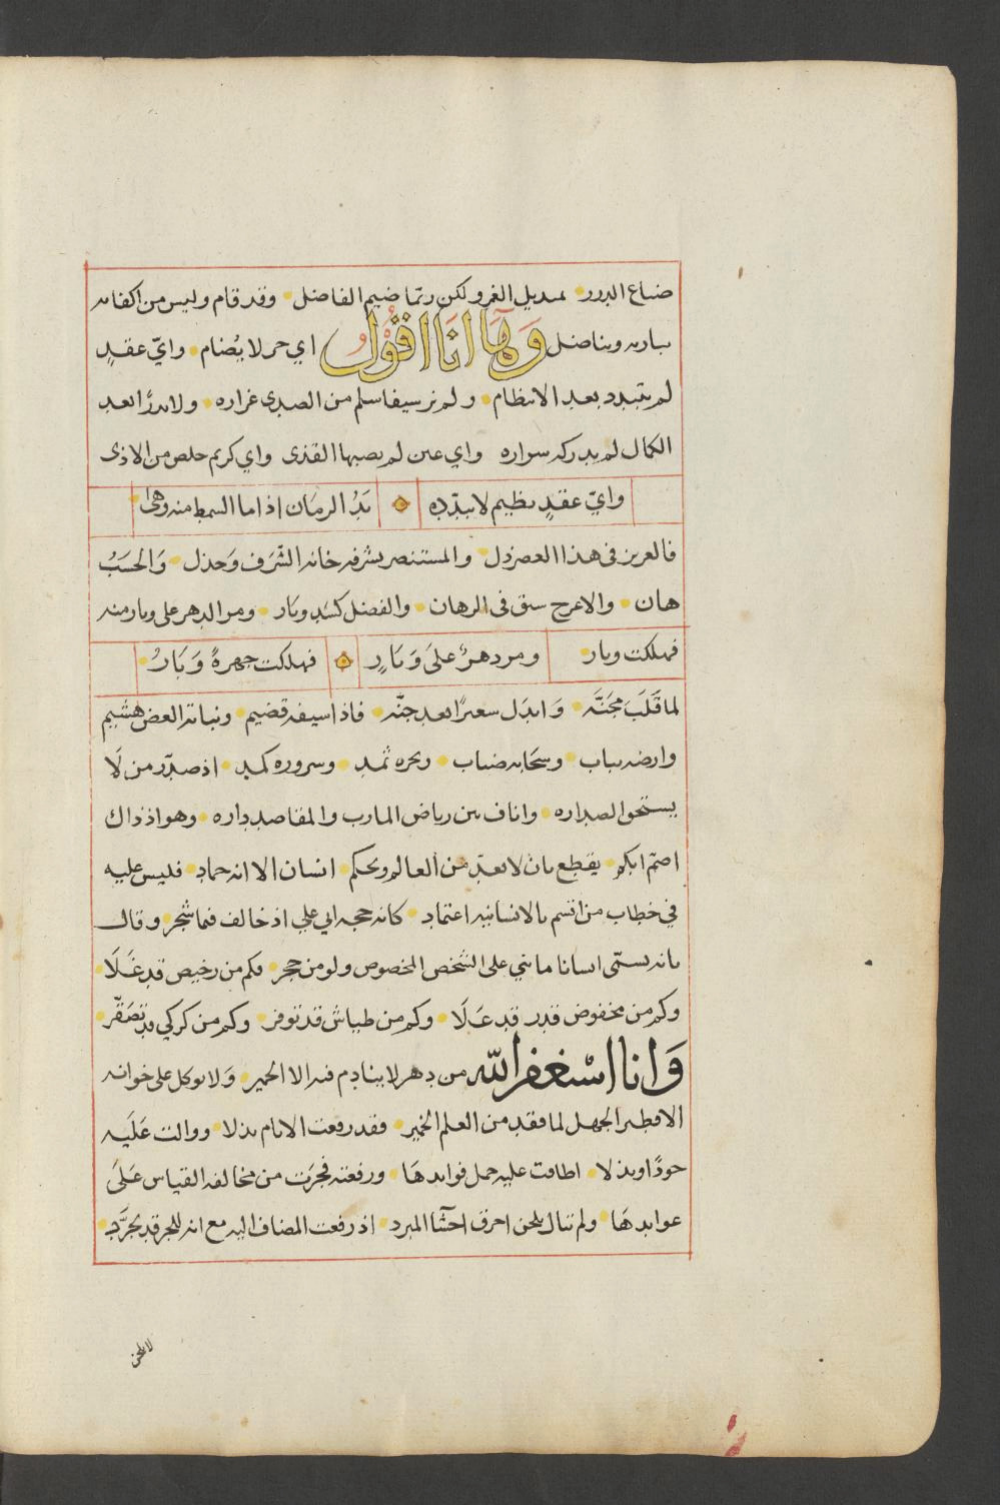 ضاع البدر بمنديل الغر ولكن ربما ضيم الفاضل وقد قام وليس من اكفائه
يباريه ويناضل وَهَا انَا اقُولُ اي حر لا يُضام وايّ عقدٍ
لم يتبدد بعد الانتظام ولم نر سيفا سلم من الصدى غراره ولا بدرًا بعد
الكمال لم يدركه سراره واي عين لم يصبها القذى واي كريم خلص من الاذى
وايّ عقدٍ نظيم لا تبدّده يَدُ الزمان اذا ما السمط منه وهى
فالعزيز في هذا العصر ذل والمستنصر بشرفه خانه الشّرَف وَخذل وَالحَسَبُ
هان والاعرج سبق في الرهان والفضل كسَد وبَار ومر الدهر على وبار منه
فهلكت وبار ومر دهرٌ علىَ وَبَارٍ فهلكت جهرةً وَبَارُ
لما قَلَبَ مِجَنَّه وَابدَل سعيرًا بعد جنّه فاذا سيفه قضيم ونباته الغض هشيم
وارضه يباب وسَحَابه ضباب وبحره ثمد وسروره كمد اذ صدّر من لَا
يستحق الصداره واناف بين رياض المارب والمقاصد داره وهو اذ ذاك
اصمّ ابكم يقطع بان لا يعدّ من العالم ويحكم انسان الا انه جماد فليس عليه
في خطاب من اتسم بالانسانيه اعتماد كانه حجه ابي علي اذ خالف فيما شجر وقال
بانه يسمّى انسانا ما بني على الشخص المخصوص ولو من حجر فكم من رخيص قد غَلَا
وكم من مخفوض قدر قد عَلَا وكم من طياش قد توقر وكم من كركي قد تصَقّر
وَانا اسْتغفر اللّه من دهر لا ينادم فيه الا الحمير وَلا يوكل على خوانه
الا فطير الجهل لما فقد من العلم الخمير فقد رفعت الايام نذلا ووالت عَلَيه
جودًا وبذلا اطافت عليه حمل فوايدهَا ورفعته فجرَت من مخالفه القياس عَلىَ
عوايدهَا ولم تبال بلحن احرق احشَا المبرد اذ رفعت المضاف اليه مع انه للجر قد تجرَّد
لا بلحن